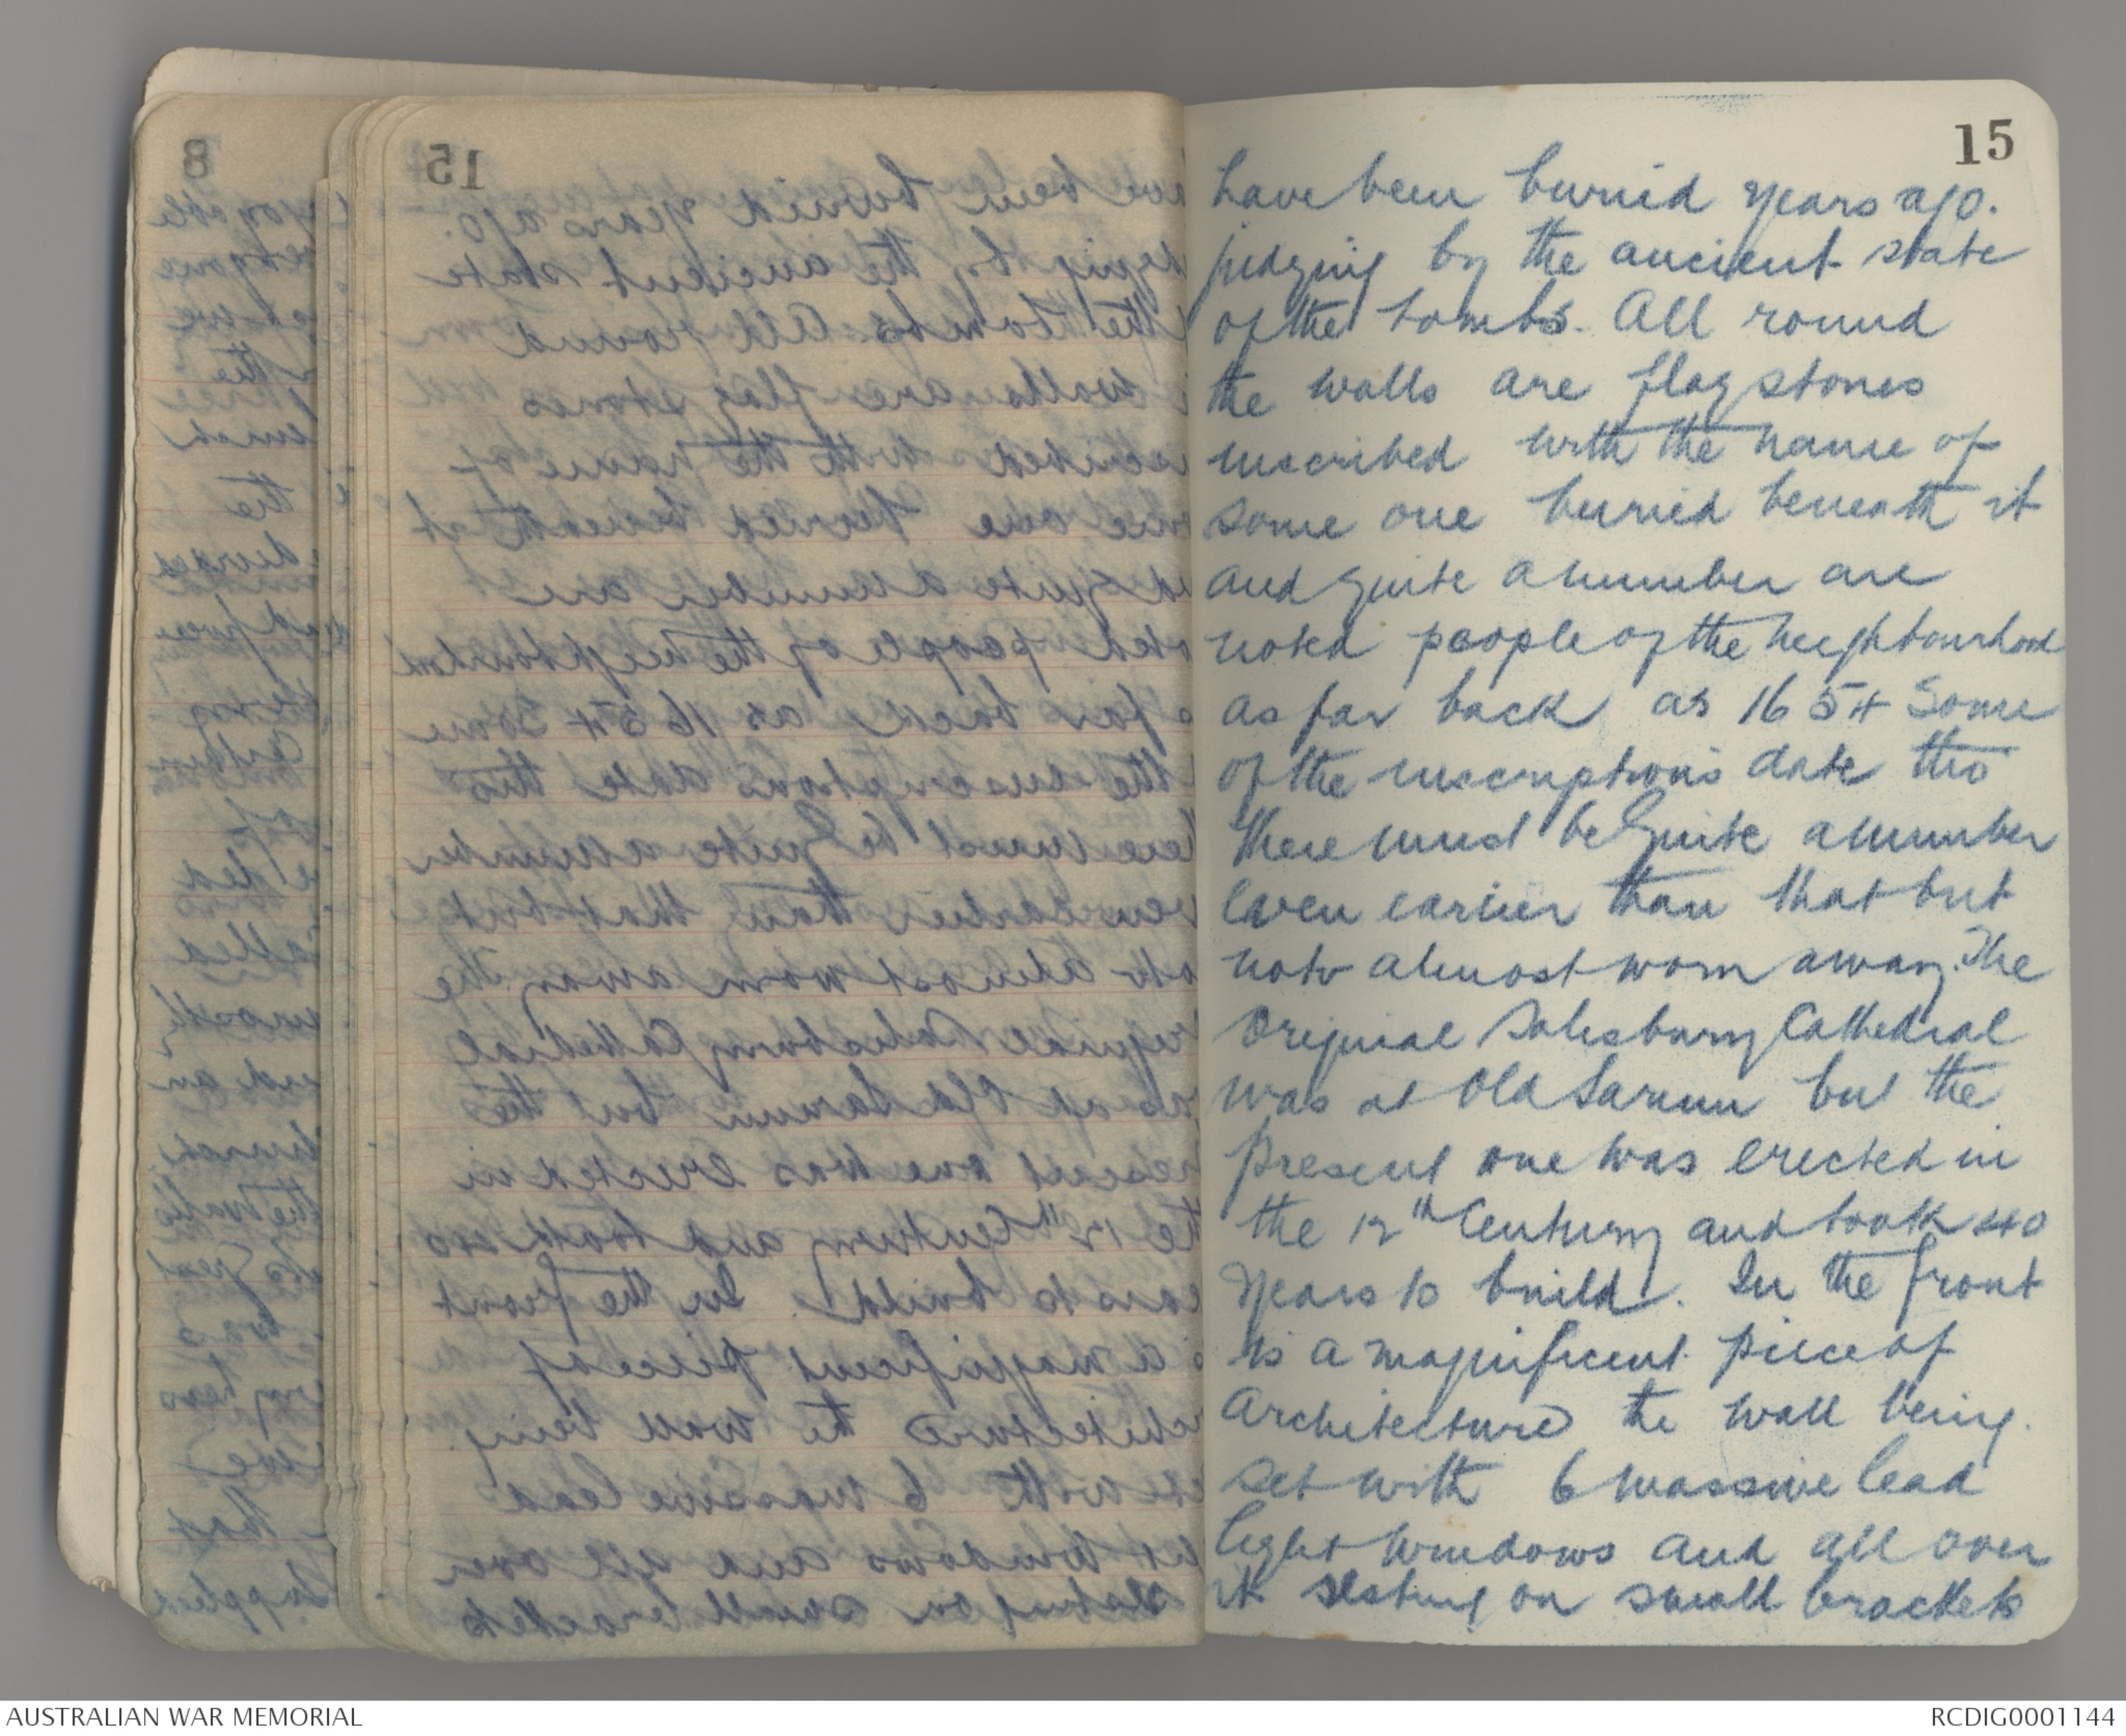 15
have been buried years ago.
judging by the ancient state
of the tombs. All round
the walls are flag stones
inscribed with the name of
some one buried beneath it
and quite a number are
noted people of the neighbourhood
as far back as 1654 Some
of the inscriptions date tho
there must be quite a number
even earlier than that but
not almost worn away. The
original Salisbury Cathedral
was at Old Sarum but the
present one was erected in
the 12th Century and took 40
years to build. In the front
is a magnificent piece of
architecture the wall being
set with 6 massive lead
light windows and all over
it on small brackets
AUSTRALIAN WAR MEMORIAL
RCDIG0001144